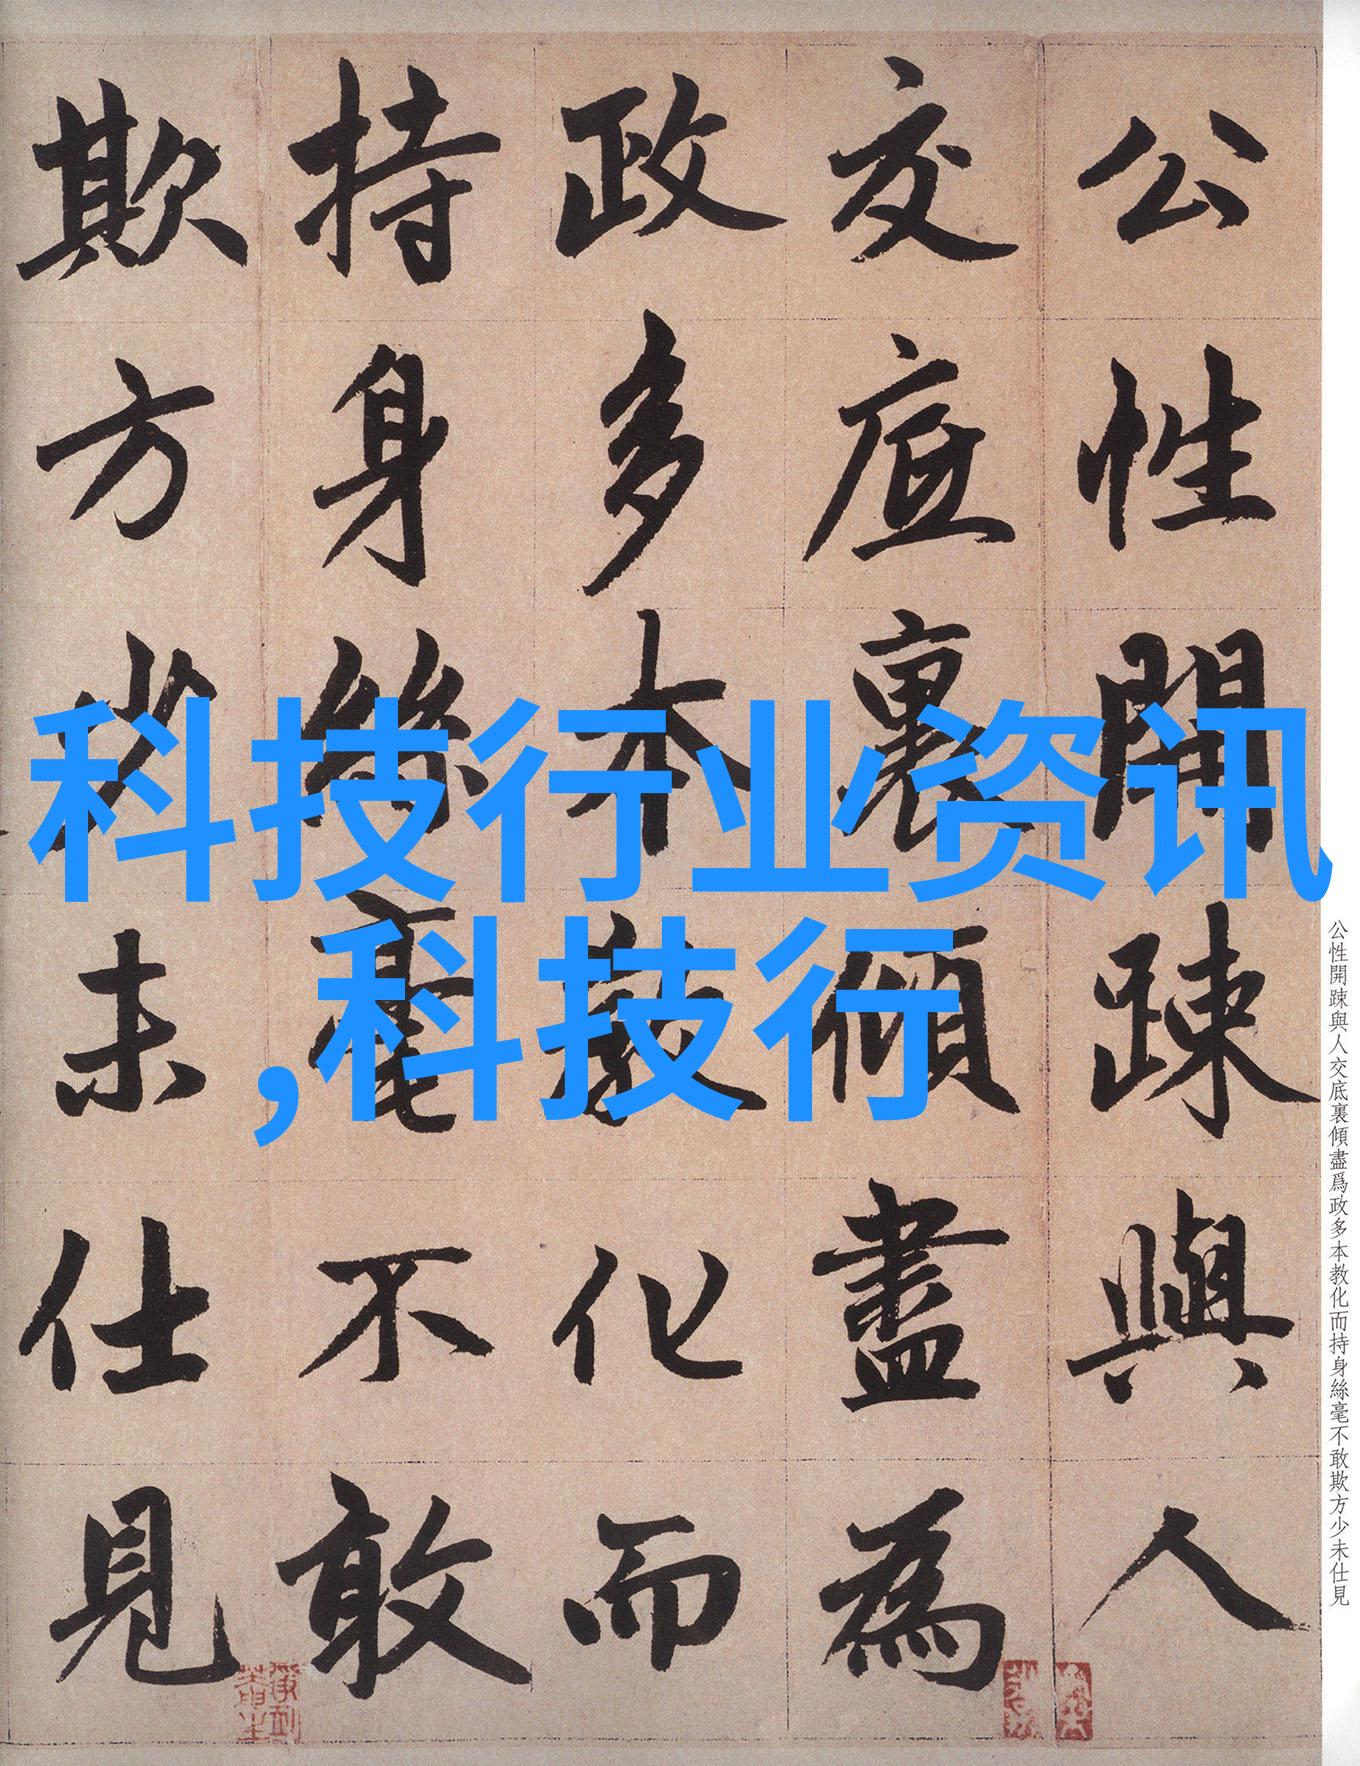 公性開踈與人
交底裏傾盡為
政多本教化而
持身絲毫不敢
欺方少未仕見
科技行业资讯
,科技行
公性開踈與人交底裏傾盡爲政多本教化而持身絲毫不敢欺方少未仕見